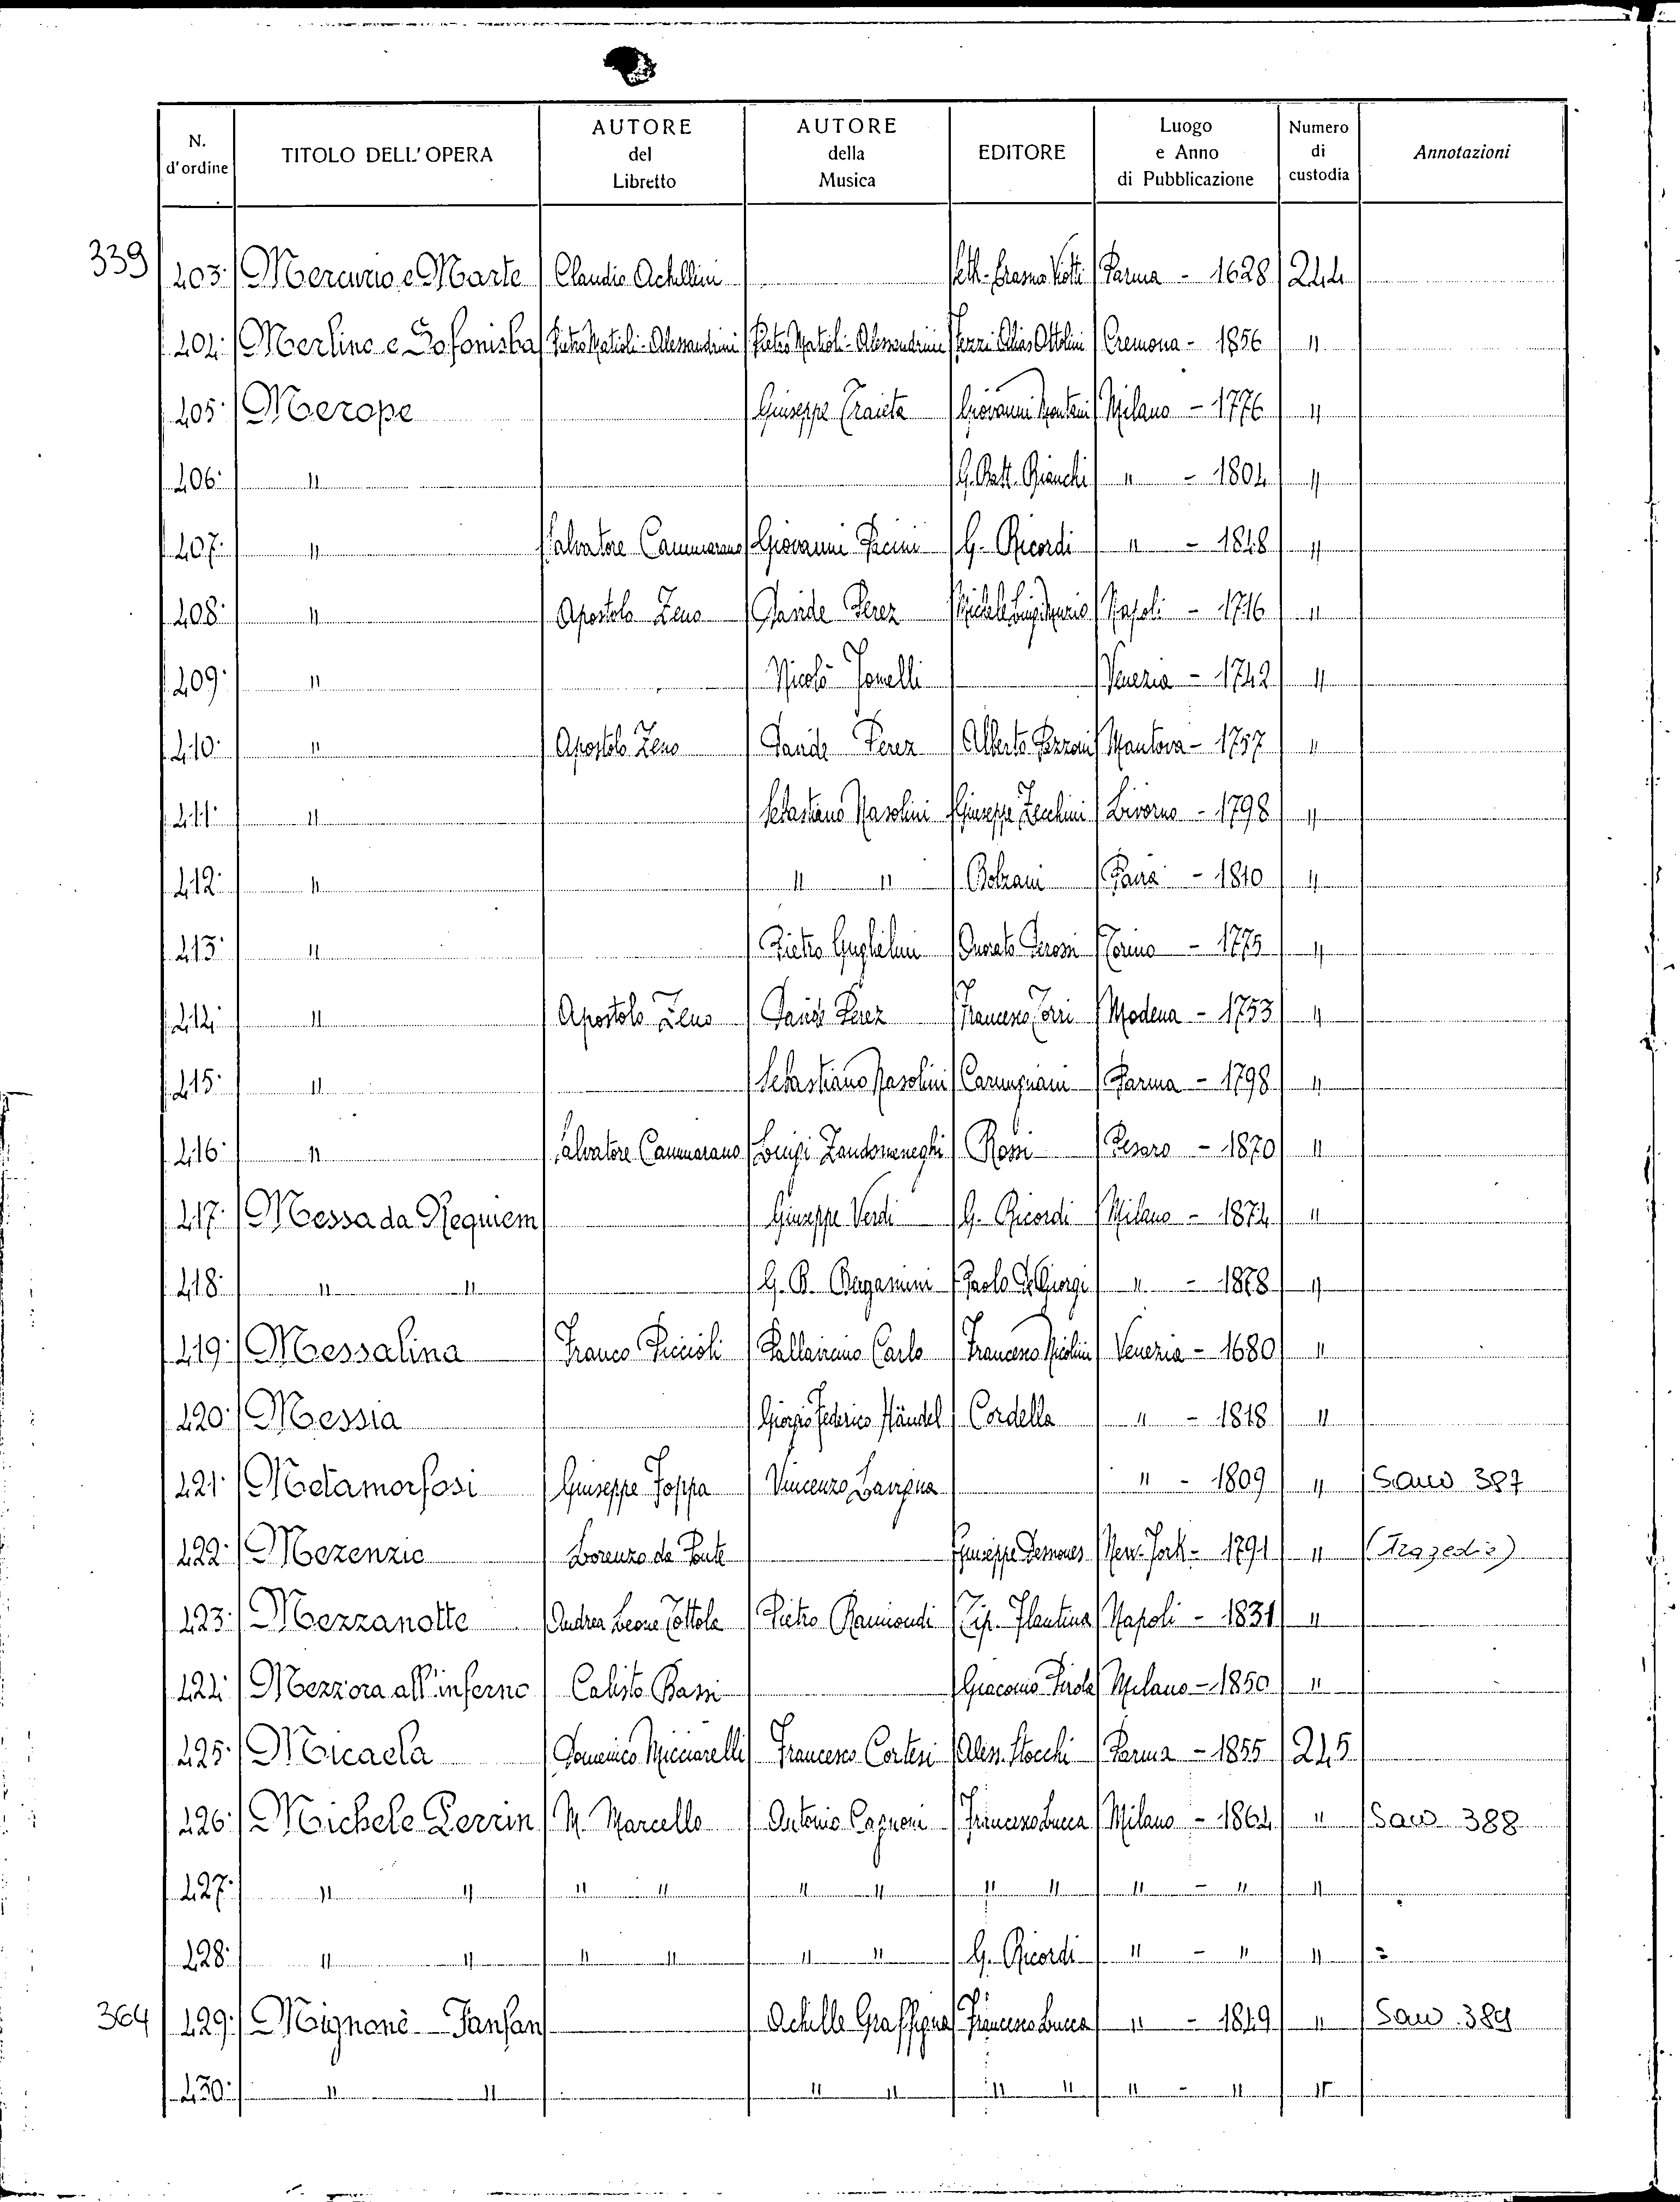 N. d'ordine | TITOLO DELL'OPERA | AUTORE del Libretto | AUTORE della Musica | EDITORE | Luogo e Anno di Pubblicazione | Numero di custodia | Annotazioni
339 403· Mercurio e Marte Claudio Achillini Seth-Erasmo Viotti Parma - 1628 244
404· Merlino e Sofonisba Pietro Matioli-Alessandrini Pietro Matioli-Alessandrini Ottolini Cremona - 1856 "
405· Merope Giuseppe Traieta Giovanni Montani Milano - 1776 "
406· " G. Batt. Bianchi " - 1804 "
407· " Salvatore Cammarano Giovanni Pacini G. Ricordi " - 1848 "
408· " Apostolo Zeno Davide Perez Michele Luigi Muzio Napoli - 1716 "
409· " Nicolò Jomelli Venezia - 1742 "
410· " Apostolo Zeno Davide Perez Alberto Pazzoni Mantova - 1757 "
411· " Sebastiano Nasolini Giuseppe Zecchini Livorno - 1798 "
412· " " " Bolzani Pavia - 1810 "
413· " Pietro Guglielmi Onorato Derossi Torino - 1775 "
414· " Apostolo Zeno Davide Perez Francesco Torri Modena - 1753 "
415· " Sebastiano Nasolini Carmignani Parma - 1798 "
416· " Salvatore Cammarano Luigi Zandomeneghi Rossi Pesaro - 1870 "
417· Messa da Requiem Giuseppe Verdi G. Ricordi Milano - 1874 "
418· " " G. B. Bergamini Paolo De Giorgi " - 1878 "
419· Messalina Franco Piccioli Pallavicino Carlo Francesco Nicolini Venezia - 1680 "
420· Messia Giorgio Federico Händel Cordella " - 1818 "
421· Metamorfosi Giuseppe Foppa Vincenzo Lavigna " - 1809 " Sala 387
422· Mezenzio Lorenzo da Ponte Giuseppe Desnoues New-York - 1791 " (Tragedia)
423· Mezzanotte Andrea Leone Tottola Pietro Raimondi Tip. Flautina Napoli - 1831 "
424· Mezz'ora all'inferno Calisto Bassi Giacomo Pirola Milano - 1850 "
425· Micaela Domenico Micciarelli Francesco Cortesi Aless. Stocchi Parma - 1855 245
426· Michele Perrin M. Marcello Antonio Cagnoni Francesco Lucca Milano - 1864 " 388
427· " " " " " " " " " - " "
428· " " " " " " G. Ricordi " - " " =
364 429· Mignonè - Fanfan Achille Graffigna Francesco Lucca " - 1849 " 389
430· " " " " " " " - " "